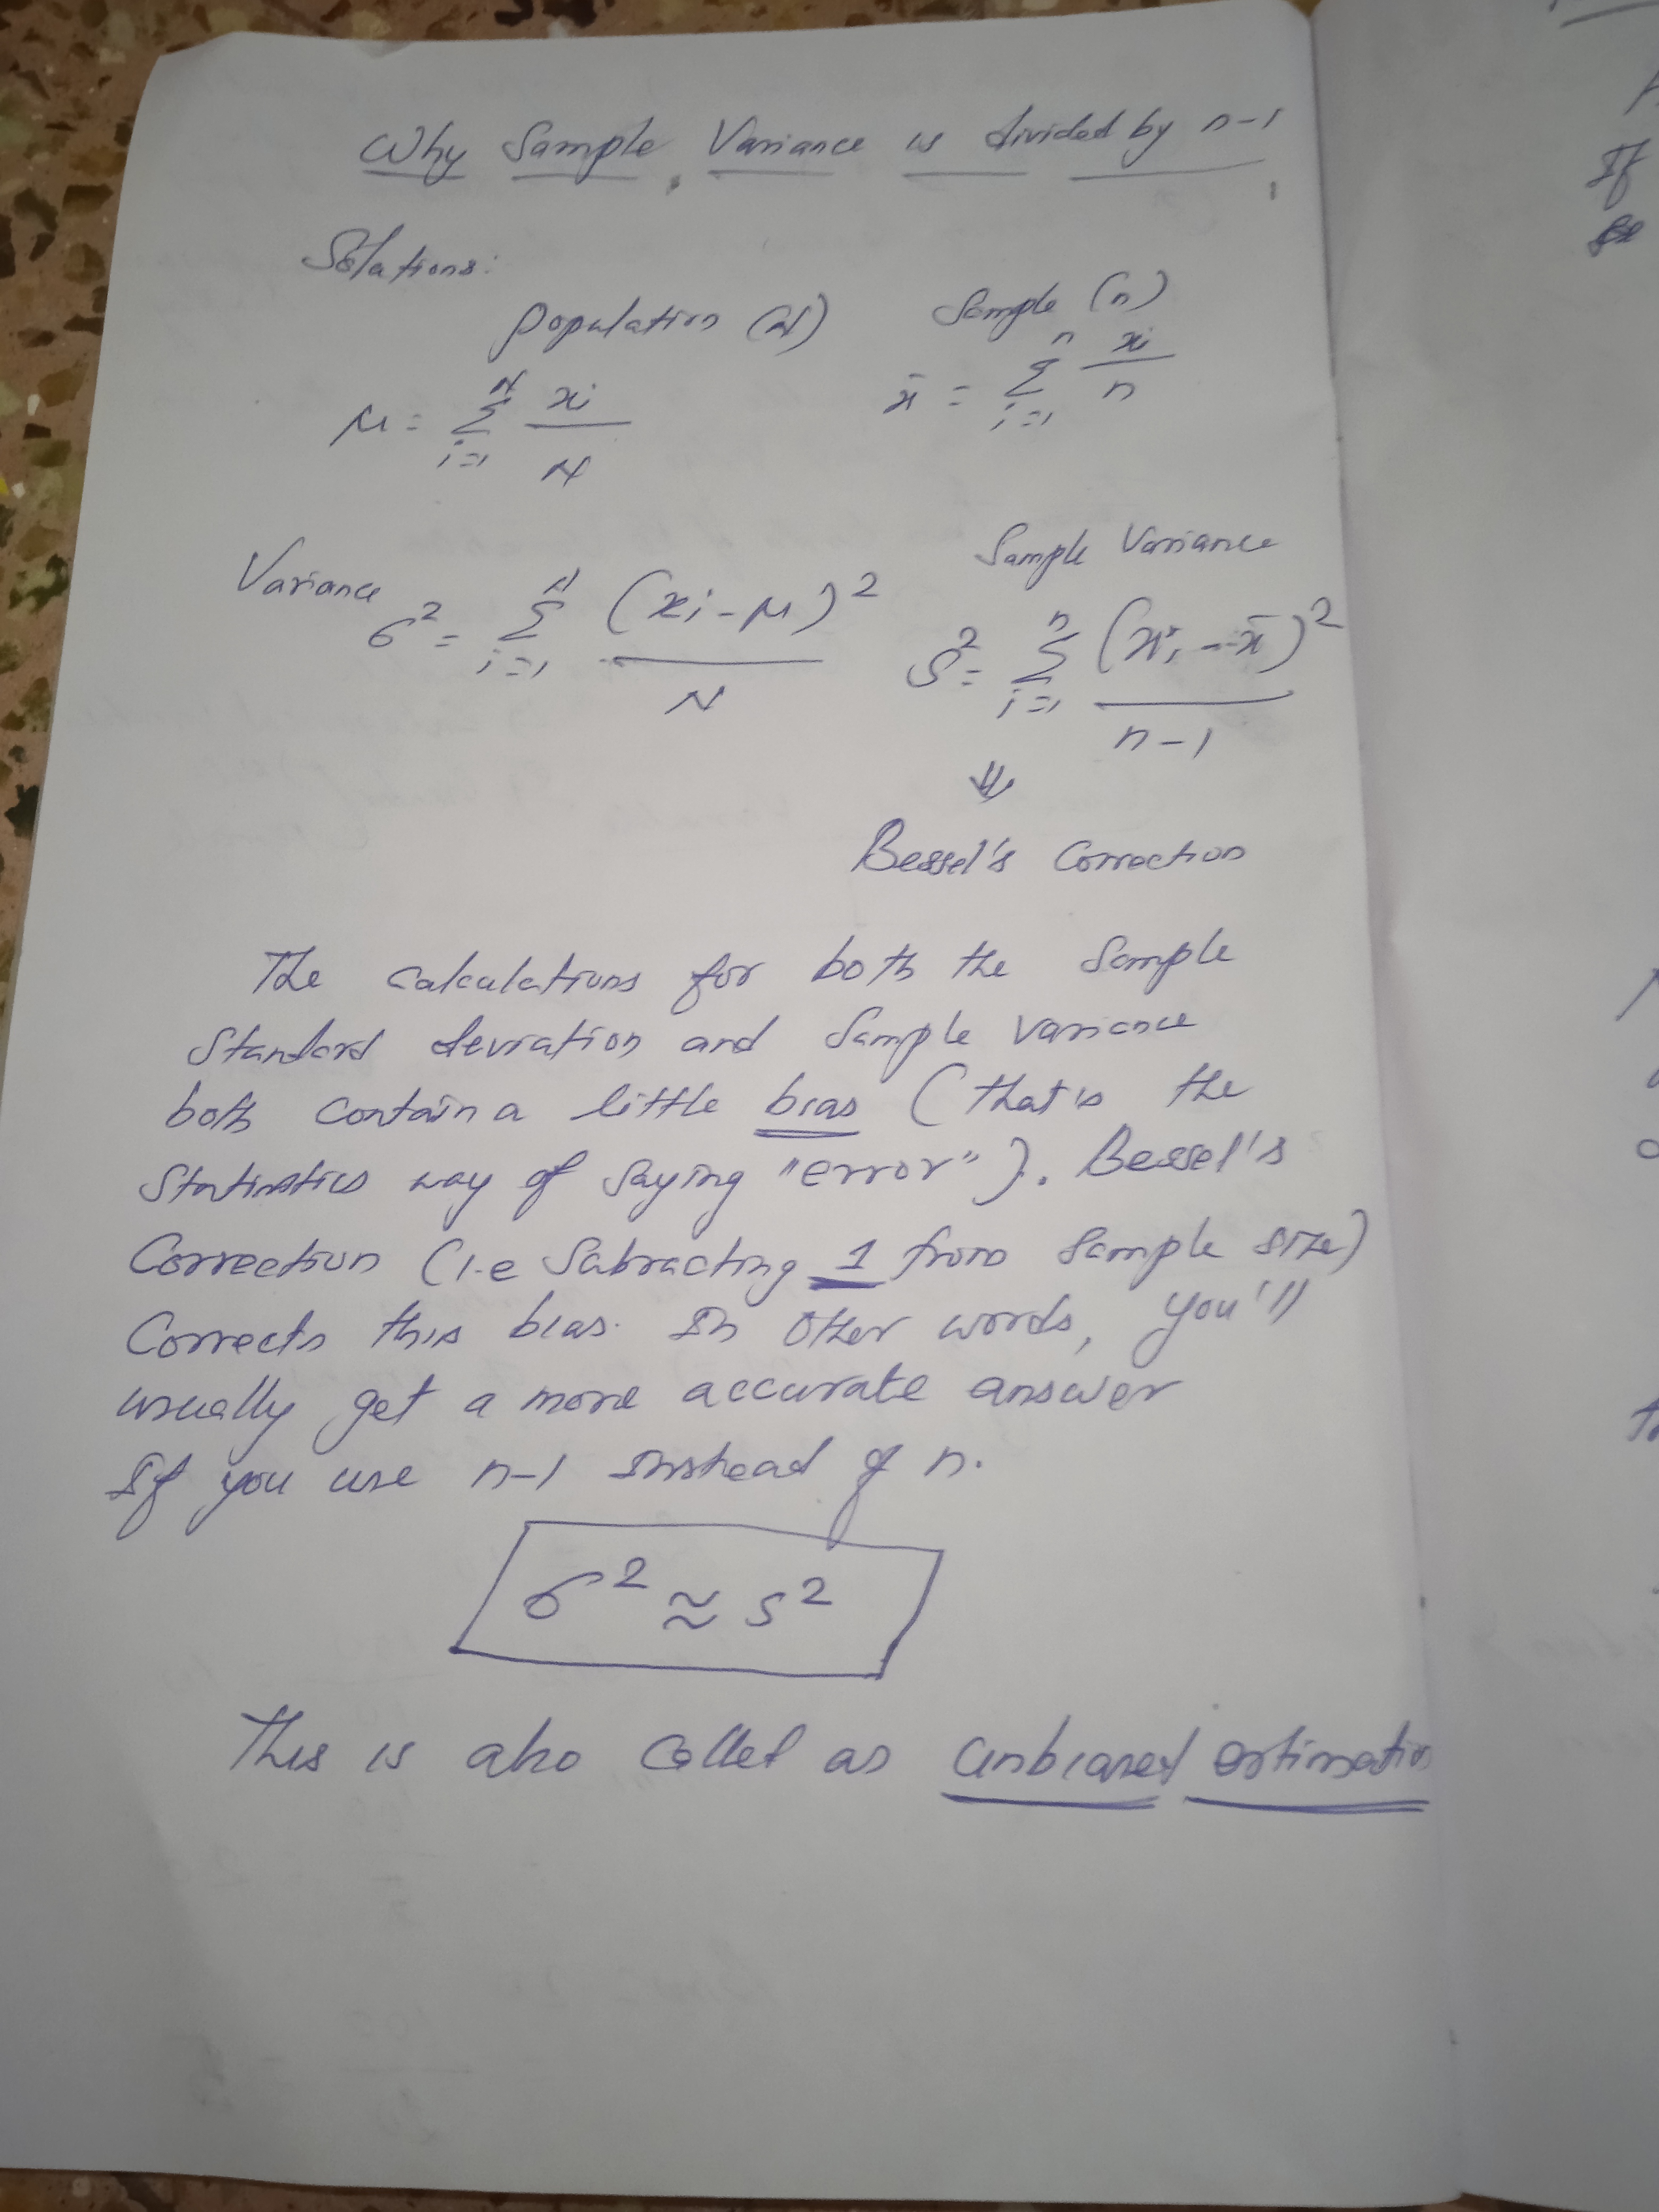 Why Sample Variance is divided by n-1
Solutions:
population (N) Sample (n)
μ = N Σ i=1 xi / N x̄ = n Σ i=1 xi / n
Variance Sample Variance
σ² = N Σ i=1 (xi - μ)² / N S² = n Σ i=1 (xi - x̄)² / n-1
⇓
Bessel's Correction
The calculations for both the Sample
Standard deviation and Sample Variance
both contain a little bias (that is the
Statistics way of saying "error"). Bessel's
Correction (i.e Subracting 1 from Sample size)
Corrects this bias. In other words, you'll
usually get a more accurate answer
If you use n-1 Instead of n.
σ² ≈ s²
This is also called as unbiased estimation
If